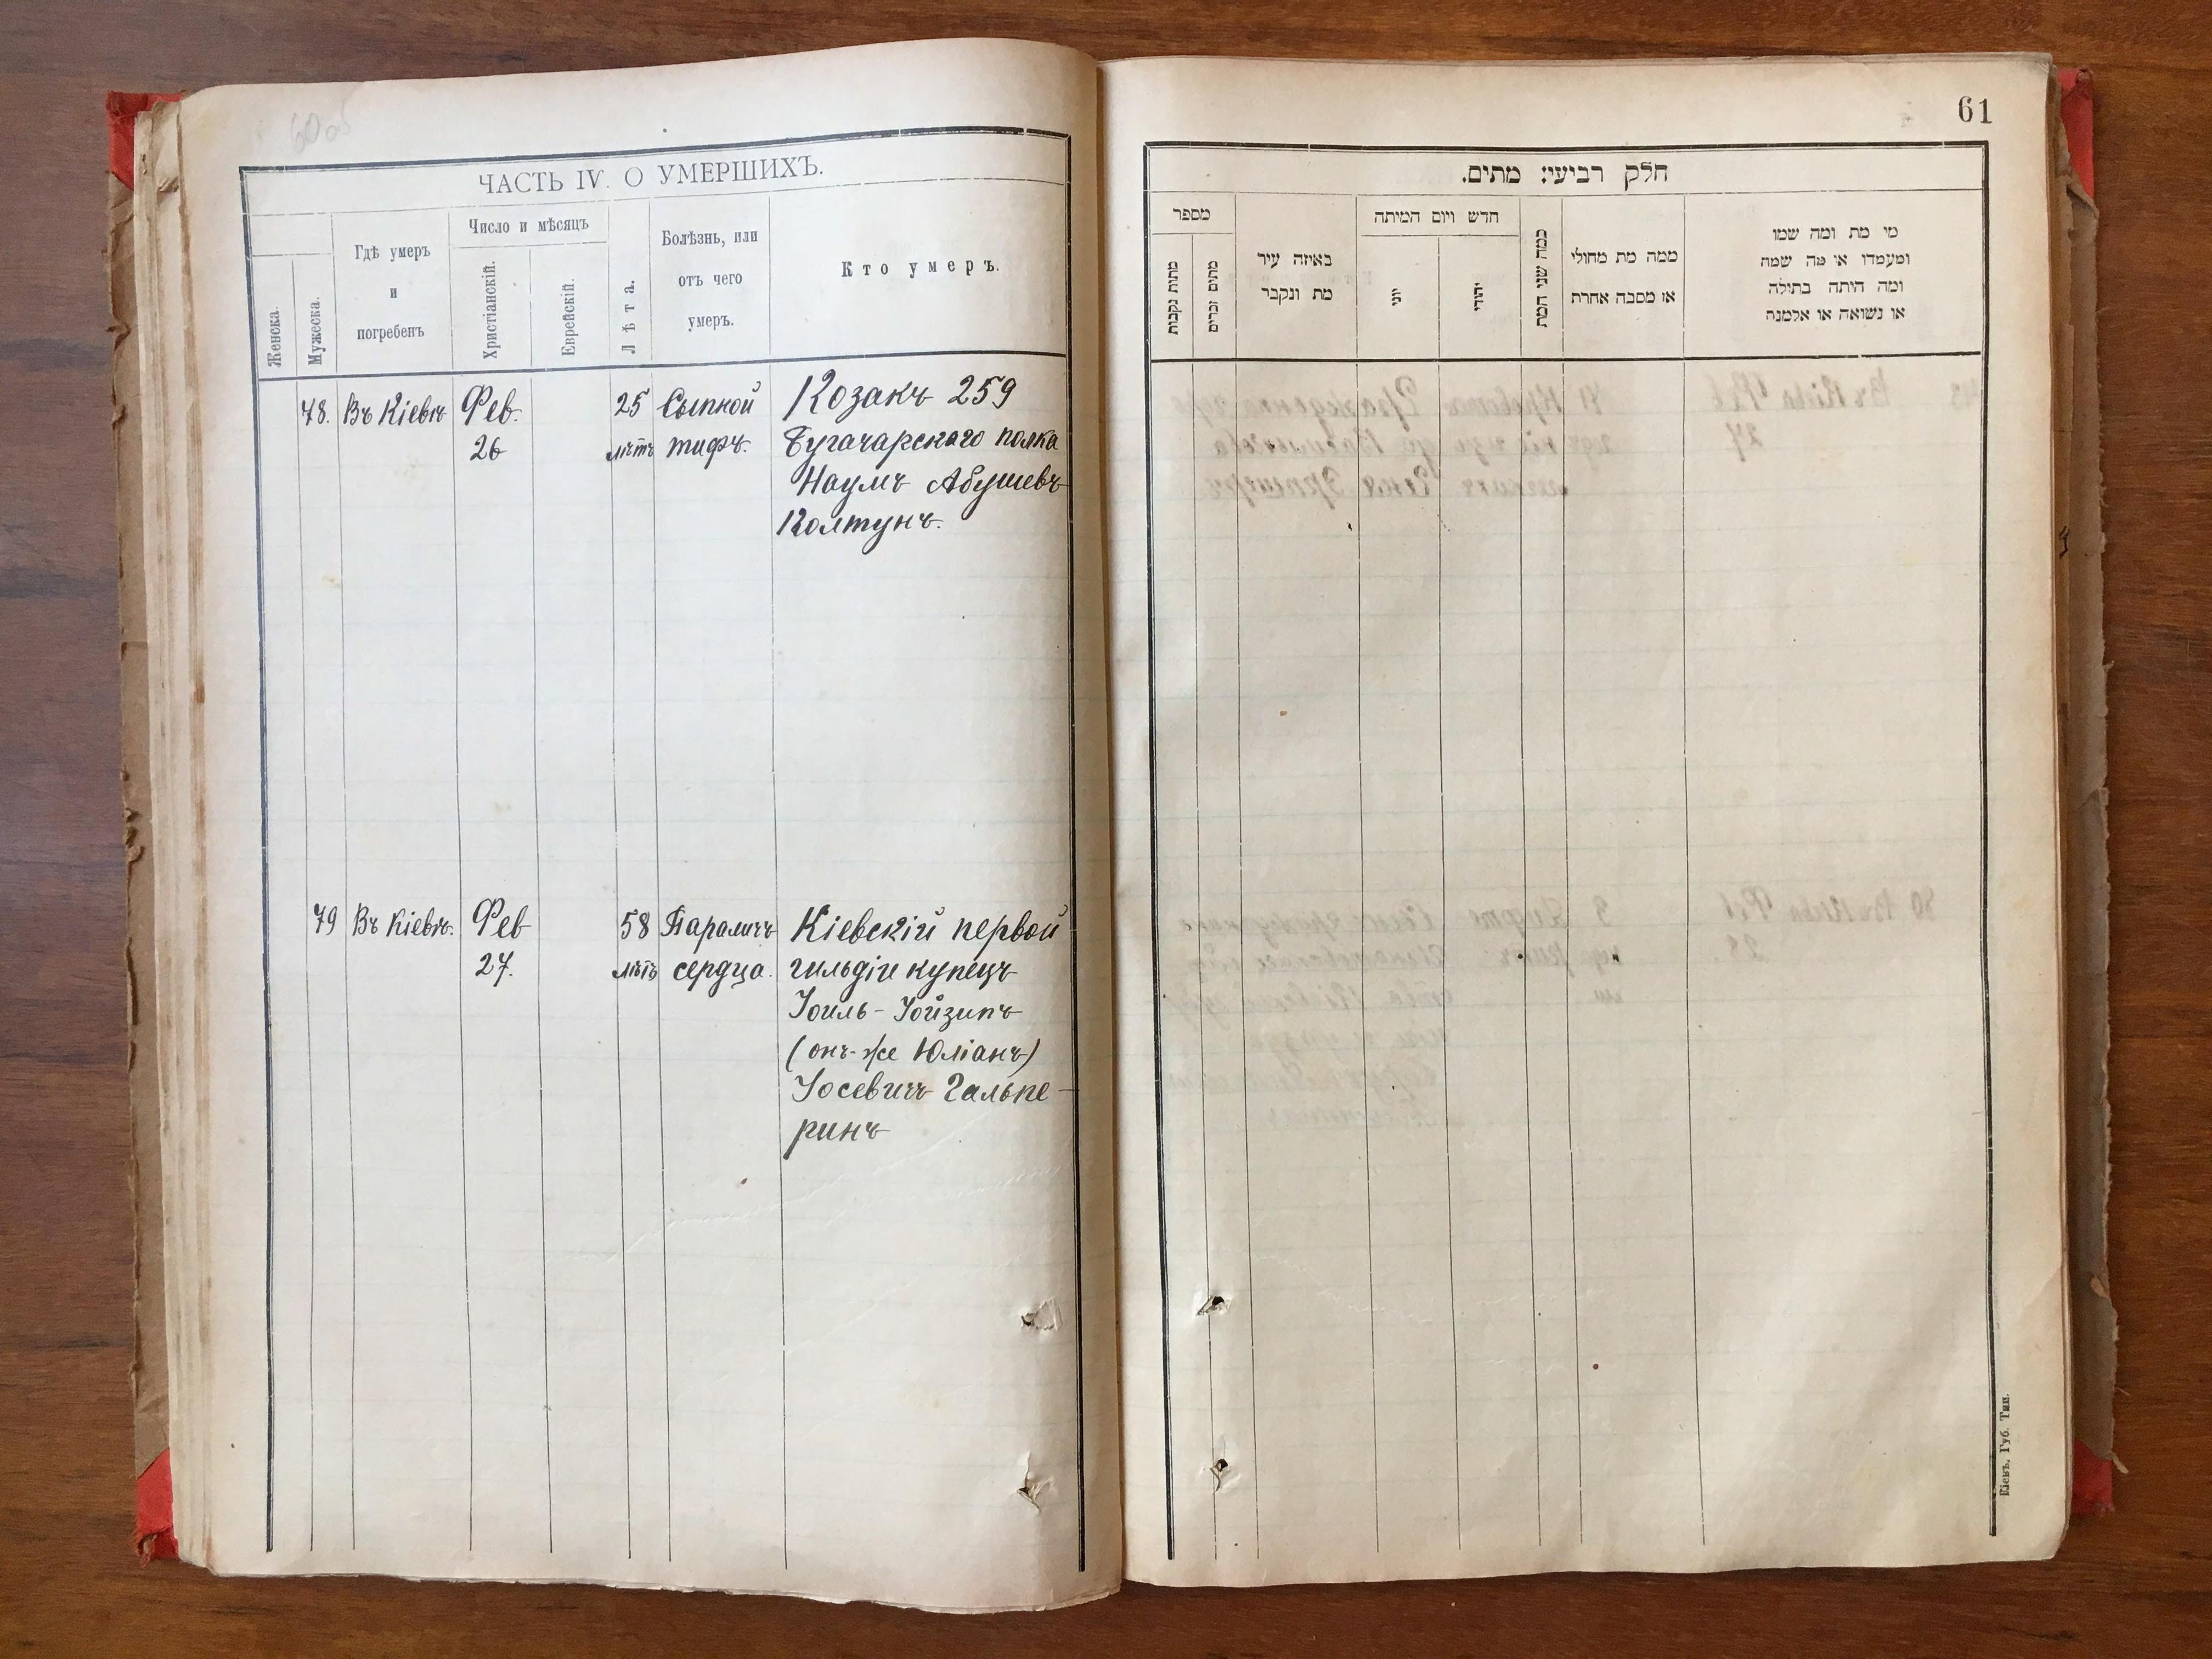 60об
ЧАСТЬ IV. О УМЕРШИХЪ.
Женска.
Мужеска.
Гдѣ умеръ
и
погребенъ
Число и мѣсяцъ
Христіанскій.
Еврейскій.
Лѣта.
Болѣзнь, или
отъ чего
умеръ.
Кто умеръ.
78. Въ Кіевѣ Фев. 25 Сыпной Козакъ 259
26 лѣтъ тифъ. Бугачарскаго полка
Наумъ Абушевъ
Колтунъ.
79 Въ Кіевѣ. Фев 58 Параличъ Кіевскій первой
27. лѣтъ сердца. гильдіи купецъ
Іоиль-Іойзипъ
(онъ-же Юліанъ)
Іосевичъ Гальпе-
ринъ
61
חלק רביעי: מתים.
מספר
מתות נקבות
מתים זכרים
באיזה עיר
מת ונקבר
חדש ויום המיתה
יוני
יהודי
כמה שני המת
ממה מת מחולי
או מסבה אחרת
מי מת ומה שמו
ומעמדו או מה שמה
ומה היתה בתולה
או נשואה או אלמנה
Кіевъ, Губ. Тип.